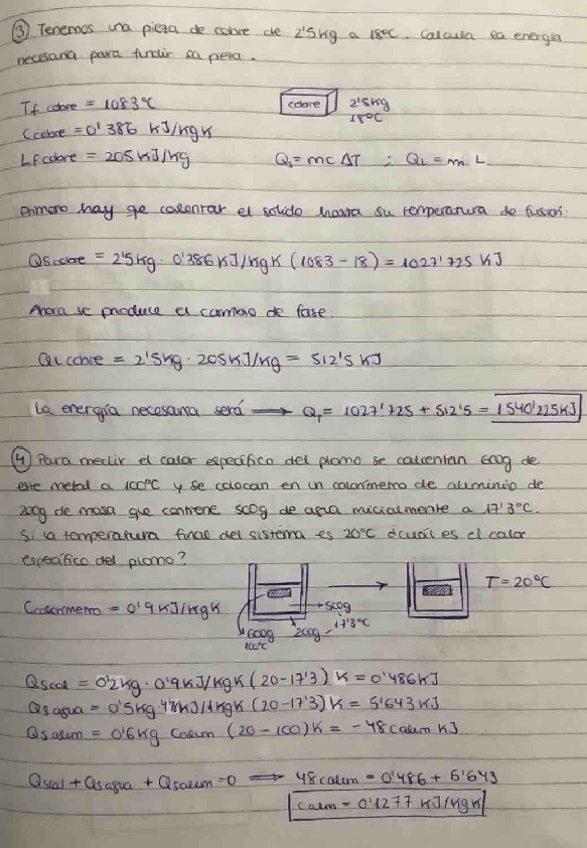 ③ Tenemos una pieza de cobre de 2'5kg a 18ºC. Calcula la energía
necesaria para fundir la pieza.
Tf cobre = 1083ºC
Ccobre = 0'386 KJ/kgK
Lf cobre = 205 KJ/kg
cobre
2'5kg
18ºC
Qs = mc ΔT ; QL = m L
Primero hay que calentar el solido hasta su temperatura de fusión:
Qs cobre = 2'5kg · 0'386 KJ/kgK (1083 - 18) = 1027'725 KJ
Ahora se produce el cambio de fase:
QL cobre = 2'5kg · 205KJ/kg = 512'5 KJ
La energía necesaria será ⟶ QT = 1027'725 + 512'5 = 1540'225KJ
④ Para medir el calor específico del plomo se calientan 600g de
este metal a 100ºC y se colocan en un calorímetro de aluminio de
200g de masa que contiene 500g de agua inicialmente a 17'3ºC.
Si la temperatura final del sistema es 20ºC ¿cuál es el calor
específico del plomo?
Ccalorimetro = 0'9 KJ/kgK
500g
17'3ºC
600g
100ºC
200g
T = 20ºC
Qscal = 0'2kg · 0'9KJ/kgK (20-17'3) K = 0'486KJ
Qsagua = 0'5kg · 4'18KJ/kgK (20-17'3) K = 5'643 KJ
Qsalum = 0'6kg Calum (20 - 100)K = -48calum KJ
Qscal + Qsagua + Qsalum = 0 ⟹ 48calum = 0'486 + 5'643
Calm = 0'1277 KJ/kgK